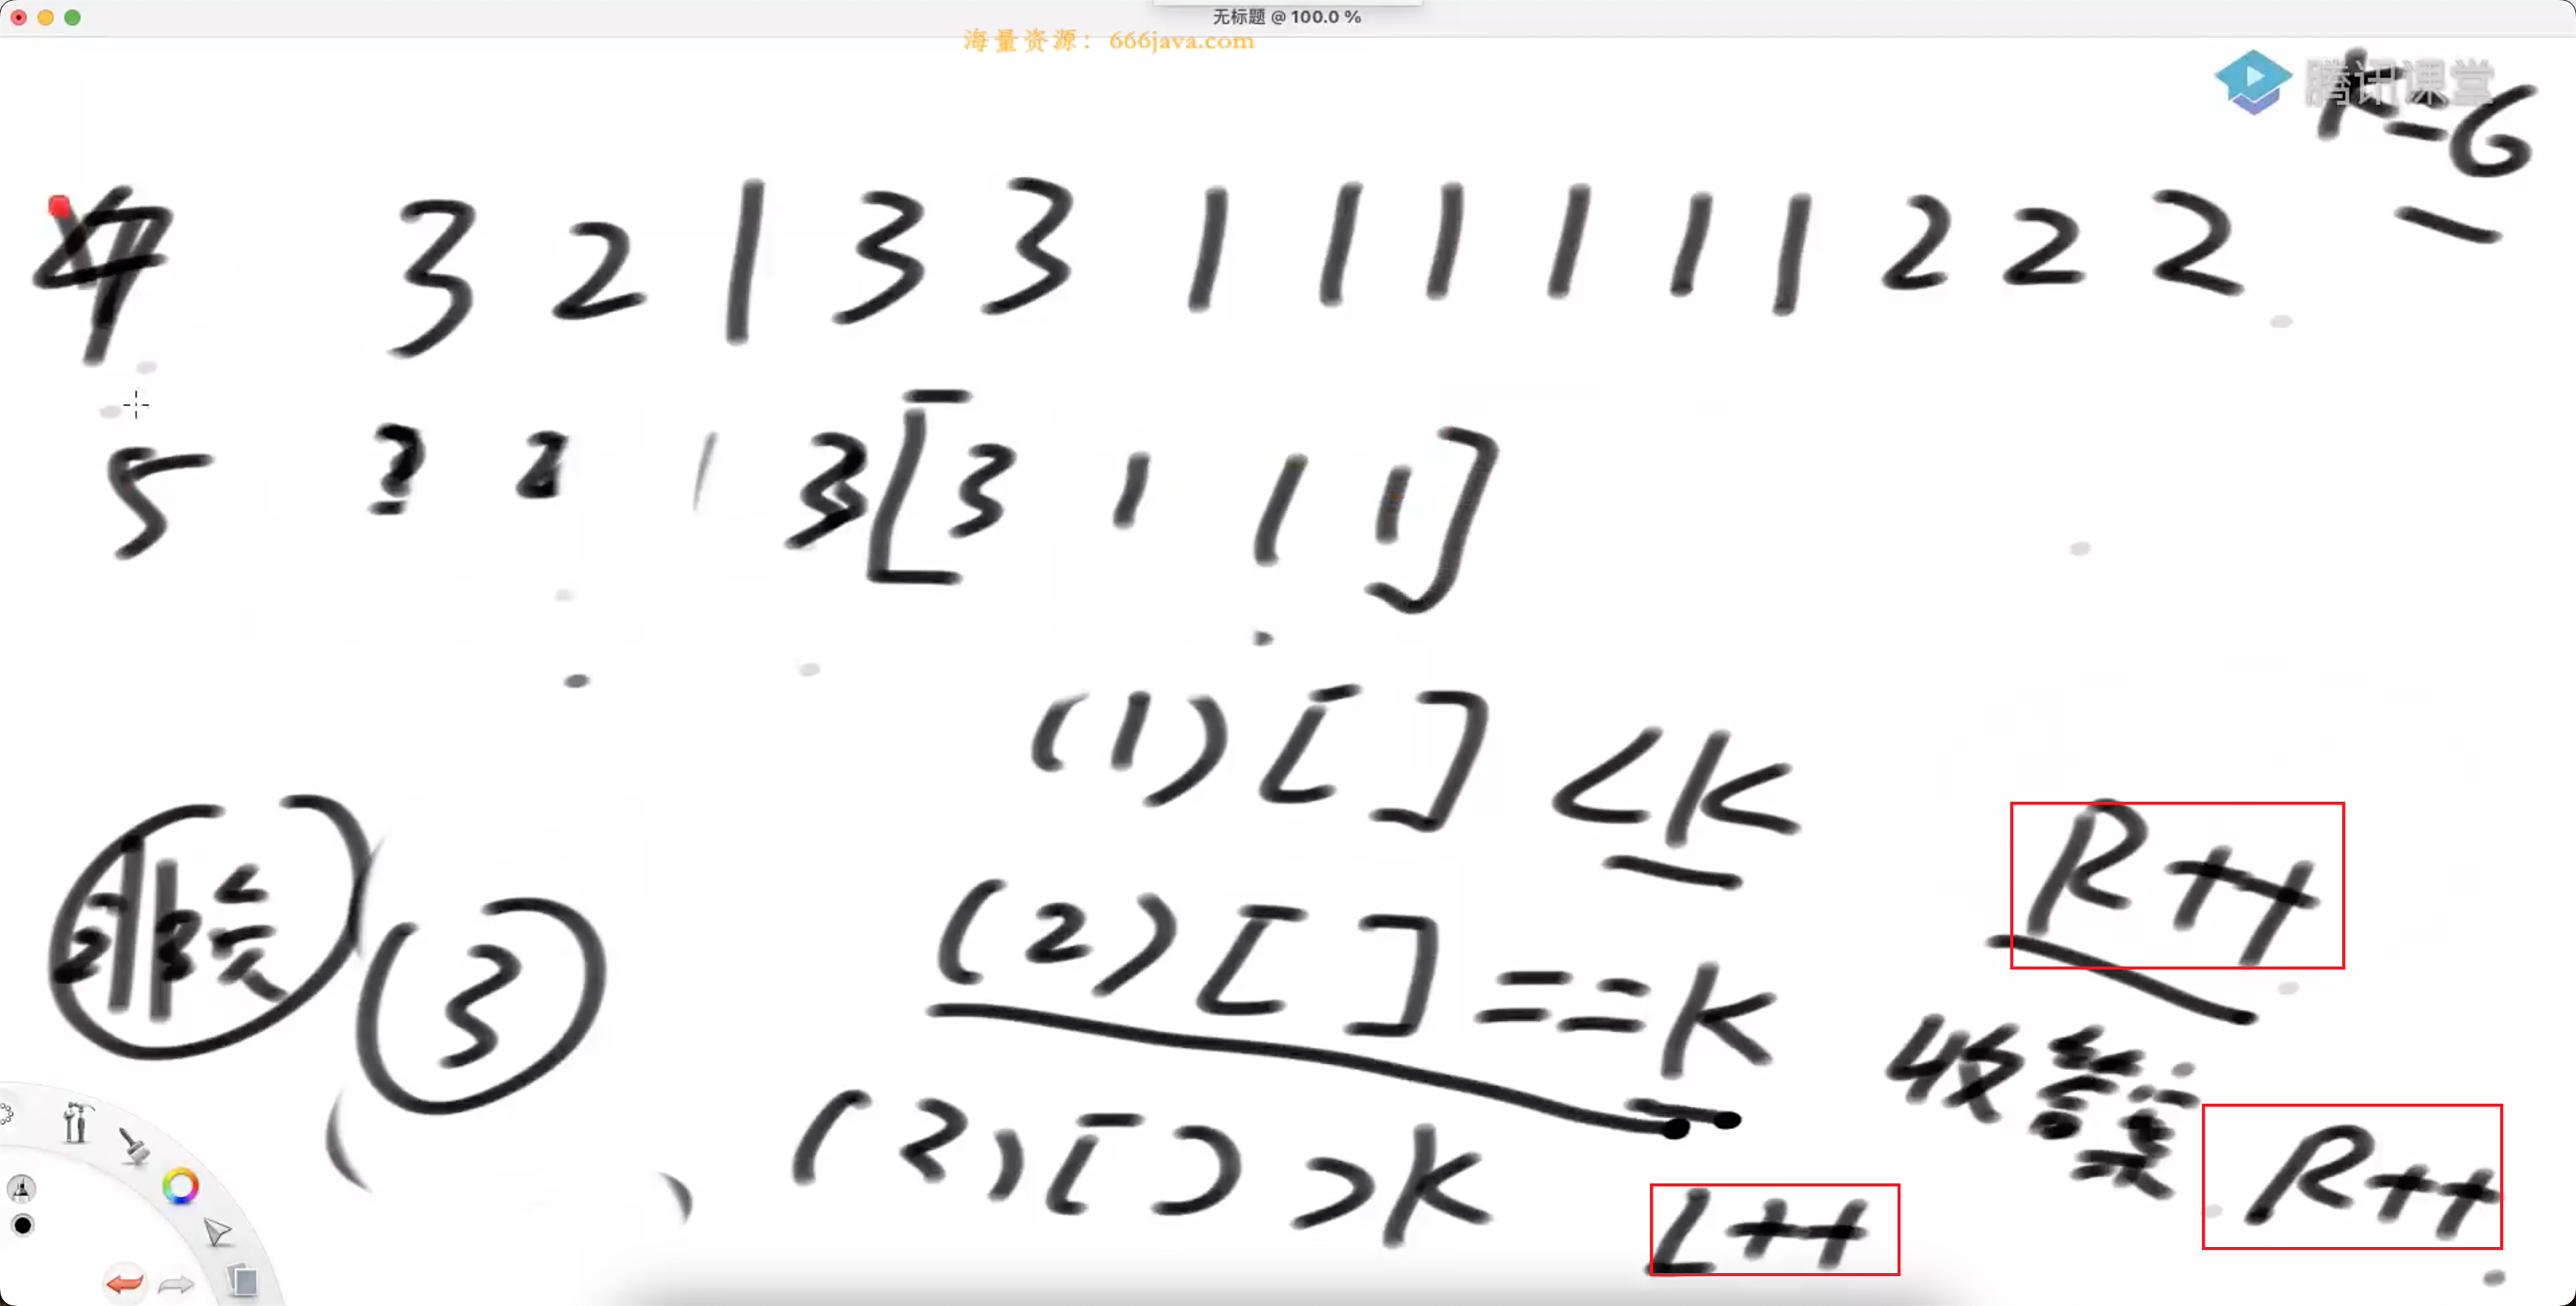 无标题 @ 100.0 %
海量资源：666java.com
腾讯课堂
K=6
3 2 1 3 3 1 1 1 1 1 1 2 2 2
5 3 2 1 3 [ 3 1 1 1 ]
(1) [ ] <K R++
(2) [ ] ==K 收 R++
(3)
(2) [ ] >K L++